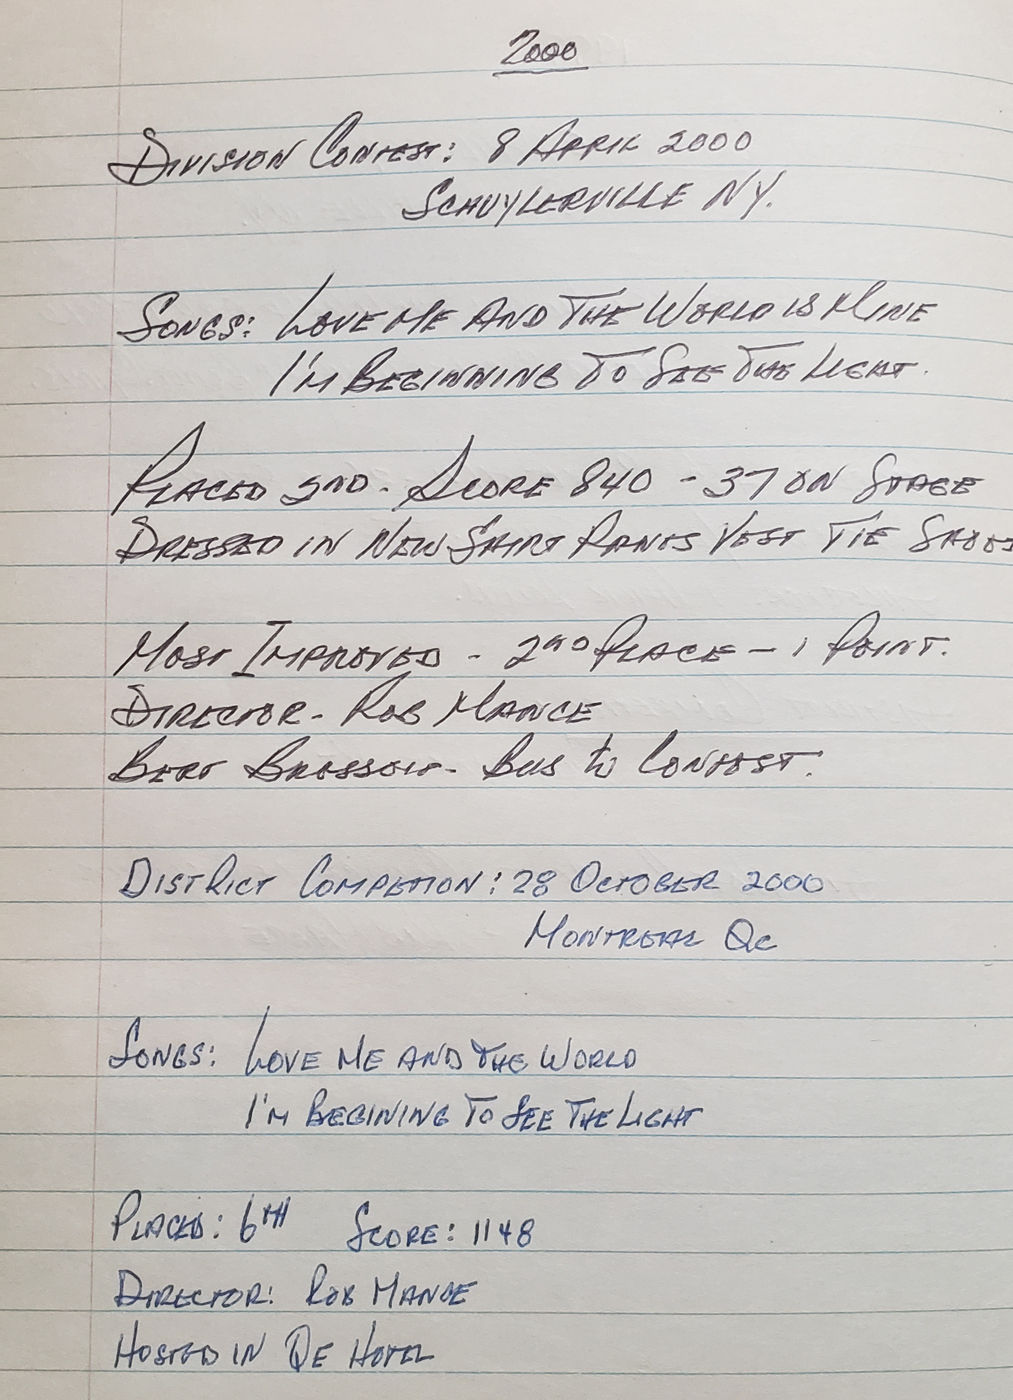 2000
DIVISION CONTEST: 8 APRIL 2000
SCHUYLERVILLE NY.
SONGS: LOVE ME AND THE WORLD IS MINE
I'M BEGINNING TO SEE THE LIGHT.
PLACED 2ND. SCORE 840 - 37 ON STAGE
DRESSED IN NEW SHIRT PANTS VEST TIE SHOES
MOST IMPROVED - 2ND PLACE - 1 POINT.
DIRECTOR - ROB MANCE
BERT - BUS to CONTEST.
DISTRICT COMPETION: 28 OCTOBER 2000
MONTREAL QC
SONGS: LOVE ME AND THE WORLD
I'M BEGINING TO SEE THE LIGHT
PLACED: 6TH SCORE: 1148
DIRECTOR: ROB MANCE
HOSTED IN QE HOTEL